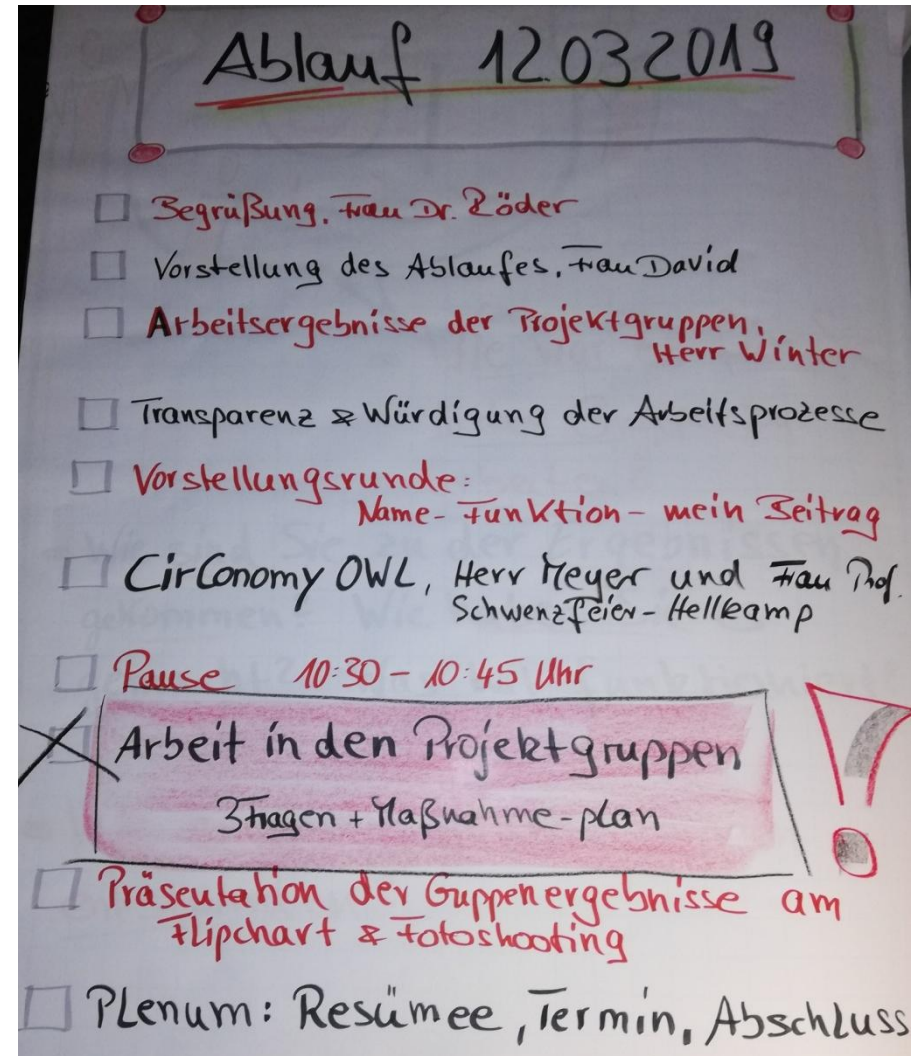 Ablauf 12.03.2019
Begrüßung, Frau Dr. Röder
Vorstellung des Ablaufes, Frau David
Arbeitsergebnisse der Projektgruppen,
Herr Winter
Transparenz & Würdigung der Arbeitsprozesse
Vorstellungsrunde:
Name - Funktion - mein Beitrag
CirConomy OWL, Herr Meyer und Frau Prof.
Schwenzfeier-Hellkamp
Pause 10:30 - 10:45 Uhr
Arbeit in den Projektgruppen
3 Fragen + Maßnahme-plan
!
Präsentation der Guppenergebnisse am
Flipchart & Fotoshooting
Plenum: Resümee, Termin, Abschluss